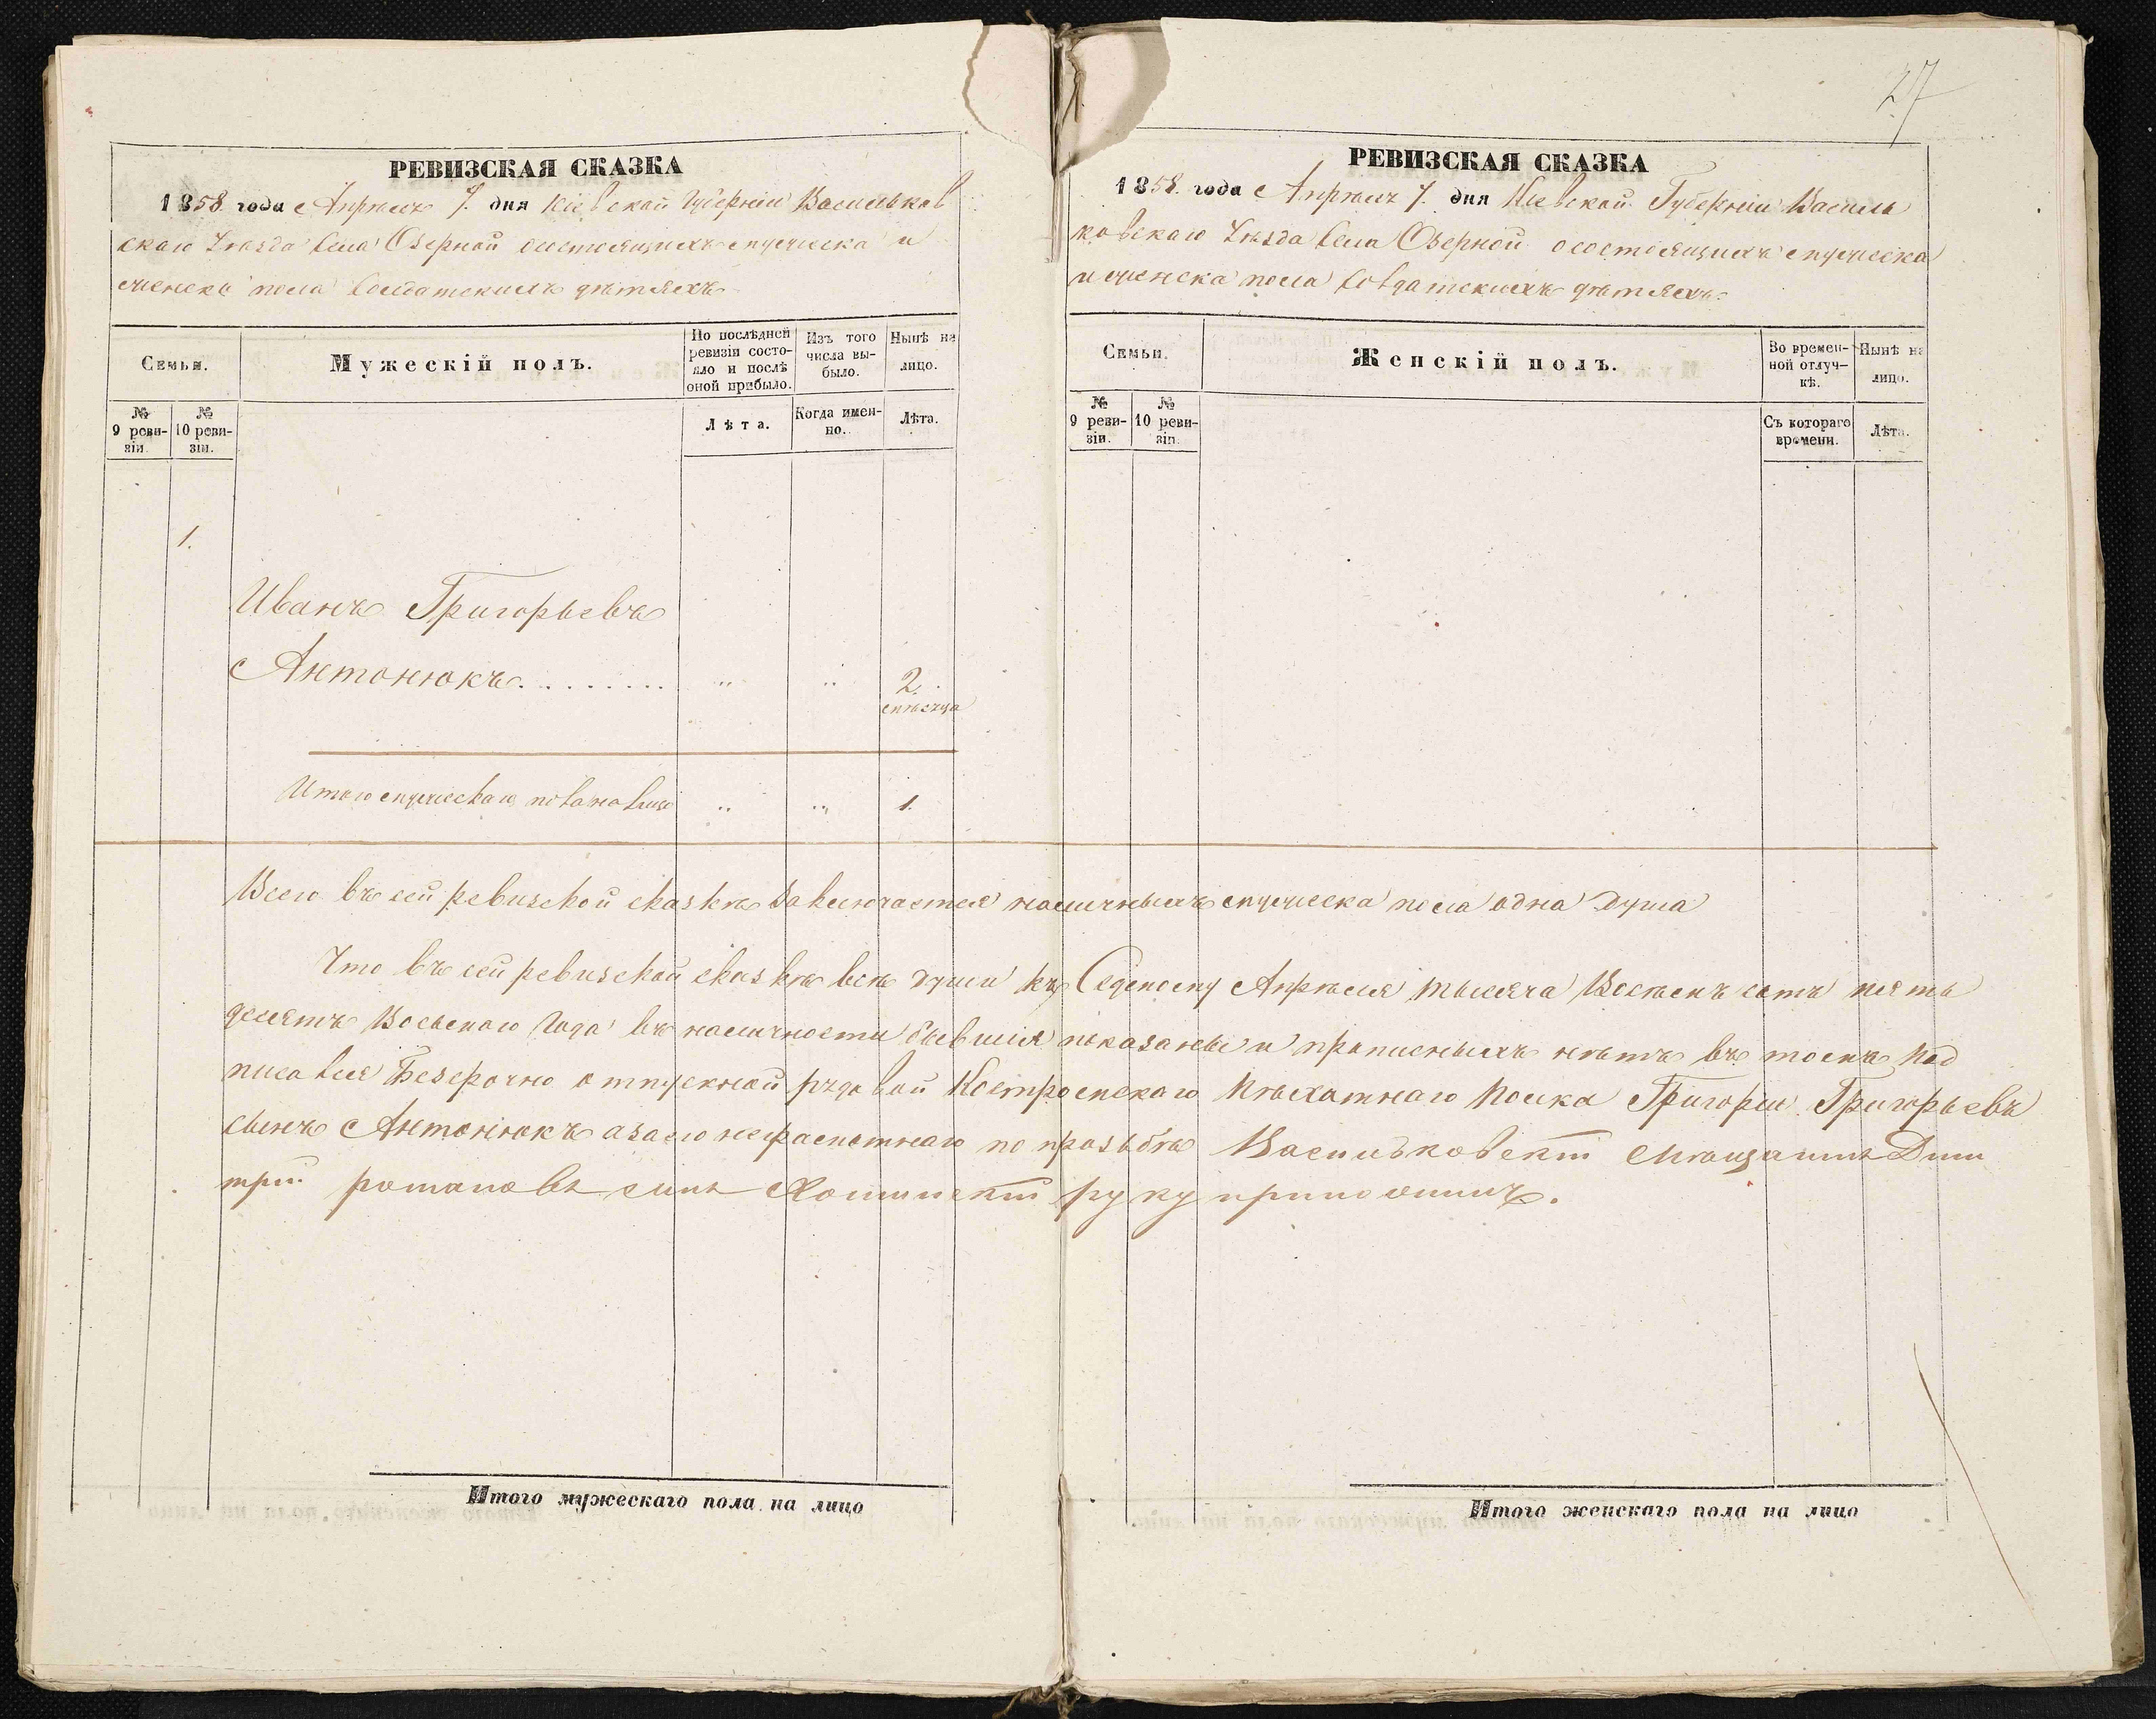 27
РЕВИЗСКАЯ СКАЗКА
1858 года Апрѣля 7. дня Кіевской Губерніи Васильков
скаго Уѣзда Села Озерной осостоящихъ мужеска и
женска пола Солдатскихъ дѣтяхъ
Семьи.
Мужескій полъ.
По послѣдней ревизіи состо-
яло и послѣ оной прибыло.
Изъ того числа вы-
было.
Нынѣ на лицо.
№ 9 реви-
зіи.
№ 10 реви-
зіи.
Лѣта.
Когда имен-
но.
Лѣта.
1.
Иванъ Григорьевъ
Антонюкъ......... " " 2.
мѣсяца
Итого мужескаго пола налицо " " 1.
РЕВИЗСКАЯ СКАЗКА
1858. года Апрѣля 7. дня Кіевской Губерніи Василь
ковскаго Уѣзда Села Озерной осостоящихъ мужеска
и женска пола Солдатскихъ дѣтяхъ
Семьи.
Женскій полъ.
Во времен-
ной отлуч-
кѣ.
Нынѣ на лицо.
№ 9 реви-
зіи.
№ 10 реви-
зіи.
Съ котораго времени.
Лѣта.
Всего въ сей ревизской сказкѣ заключается наличныхъ мужеска пола одна душа
Что въ сей ревизской сказкѣ всѣ души къ Седьмому Апрѣля тысяча Восемь сотъ пять
десятъ Восьмаго Года въ наличности бывшія показаны и прописныхъ нѣтъ въ томъ под
писался Безсрочно отпускной рядовой Костромскаго Пѣхотнаго Полка Григорій Григорьевъ
сынъ Антонюкъ азаего неграмотнаго по прозьбѣ Васильковскій мѣщанинъ Дми
трій романовъ сынъ руку приложилъ.
Итого мужескаго пола на лицо
Итого женскаго пола на лицо